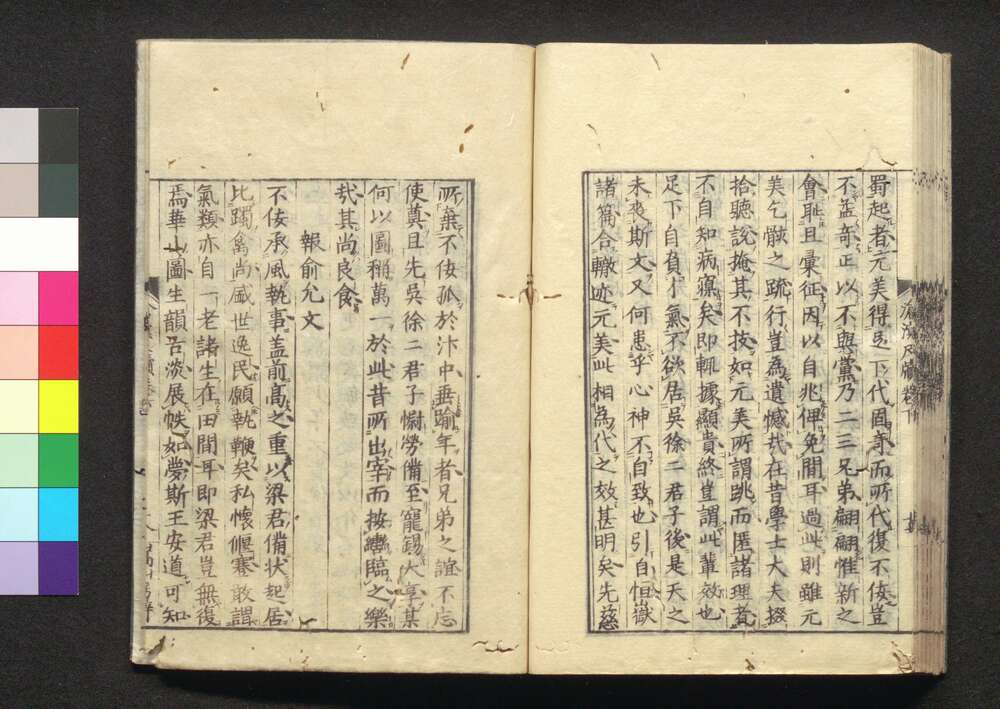 蜀起者元美得足下代固奇而所代復不佞豈
不益奇正以不與黨乃二三兄弟翩翩惟新之
會耻且彙征因以自兆俾免間耳過此則雖元
美乞骸之疏行豈為遺憾哉在昔學士大夫掇
拾聽說掩其不按如元美所謂跳而匿諸理者
不自知病寱矣即輒據顯貴終豈謂此輩效也
足下自負才氣不欲居吳徐二君子後是天之
未喪斯文又何患乎心神不自致也引自恒嶽
諸篇合轍迹元美此相為代之效甚明矣先慈
所棄不佞孤於汴中垂踰年者兄弟之誼不忘
使奠且先吳徐二君子慟勞備至寵錫大享某
何以圖稱萬一於此昔所出宰而按繼臨之樂
哉其尚良食
報俞允文
不佞承風執事蓋前髙之重以梁君備狀起居
比躅禽尚盛世逸民願執鞭矣私懷偃蹇敢謂
氣類亦自一老諸生在田間耳即梁君豈無復
焉華山圖生韻古淡展帙如夢斯王安道可知